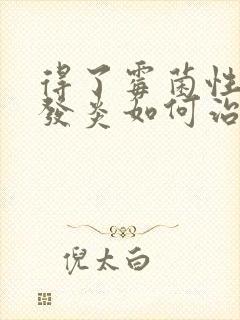 得了霉菌性
發炎如何治
倪太白